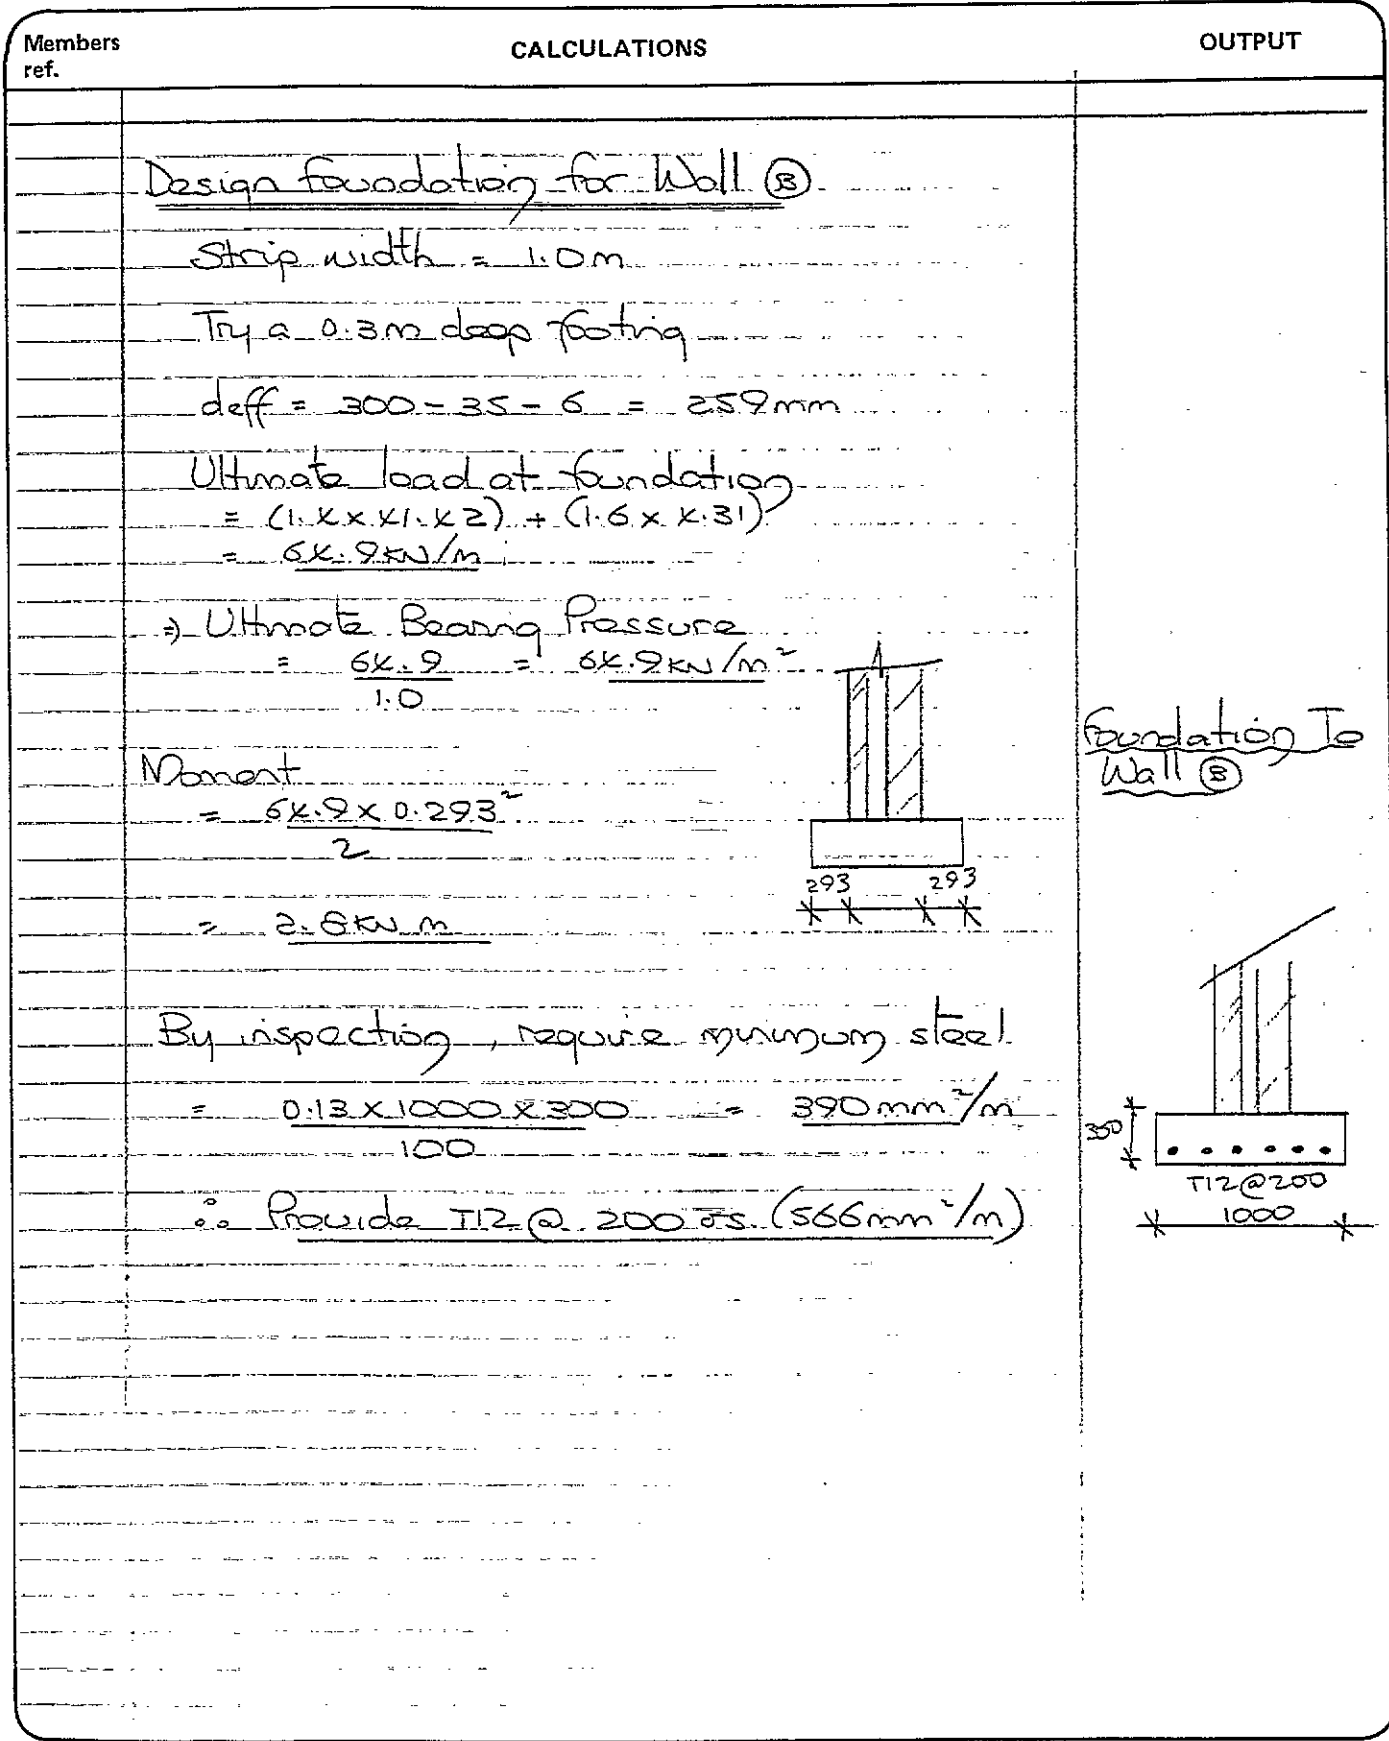 Members
ref.
CALCULATIONS
OUTPUT
Design foundation for Wall Ⓑ
Strip width = 1.0m
Try a 0.3m deep footing
deff = 300 - 35 - 6 = 259mm
Ultimate load at foundation
= (1.4 x 41.42) + (1.6 x 4.31)
= 64.9kN/m
⇒ Ultimate Bearing Pressure
= 64.9 = 64.9kN/m²
1.0
Moment
= 64.9 x 0.293²
2
293 293
= 2.8kN m
Foundation To
Wall Ⓑ
By inspection, require minimum steel
= 0.13 x 1000 x 300 = 390mm²/m
100
300
∴ Provide T12 @ 200 c/s. (566mm²/m)
T12@200
1000